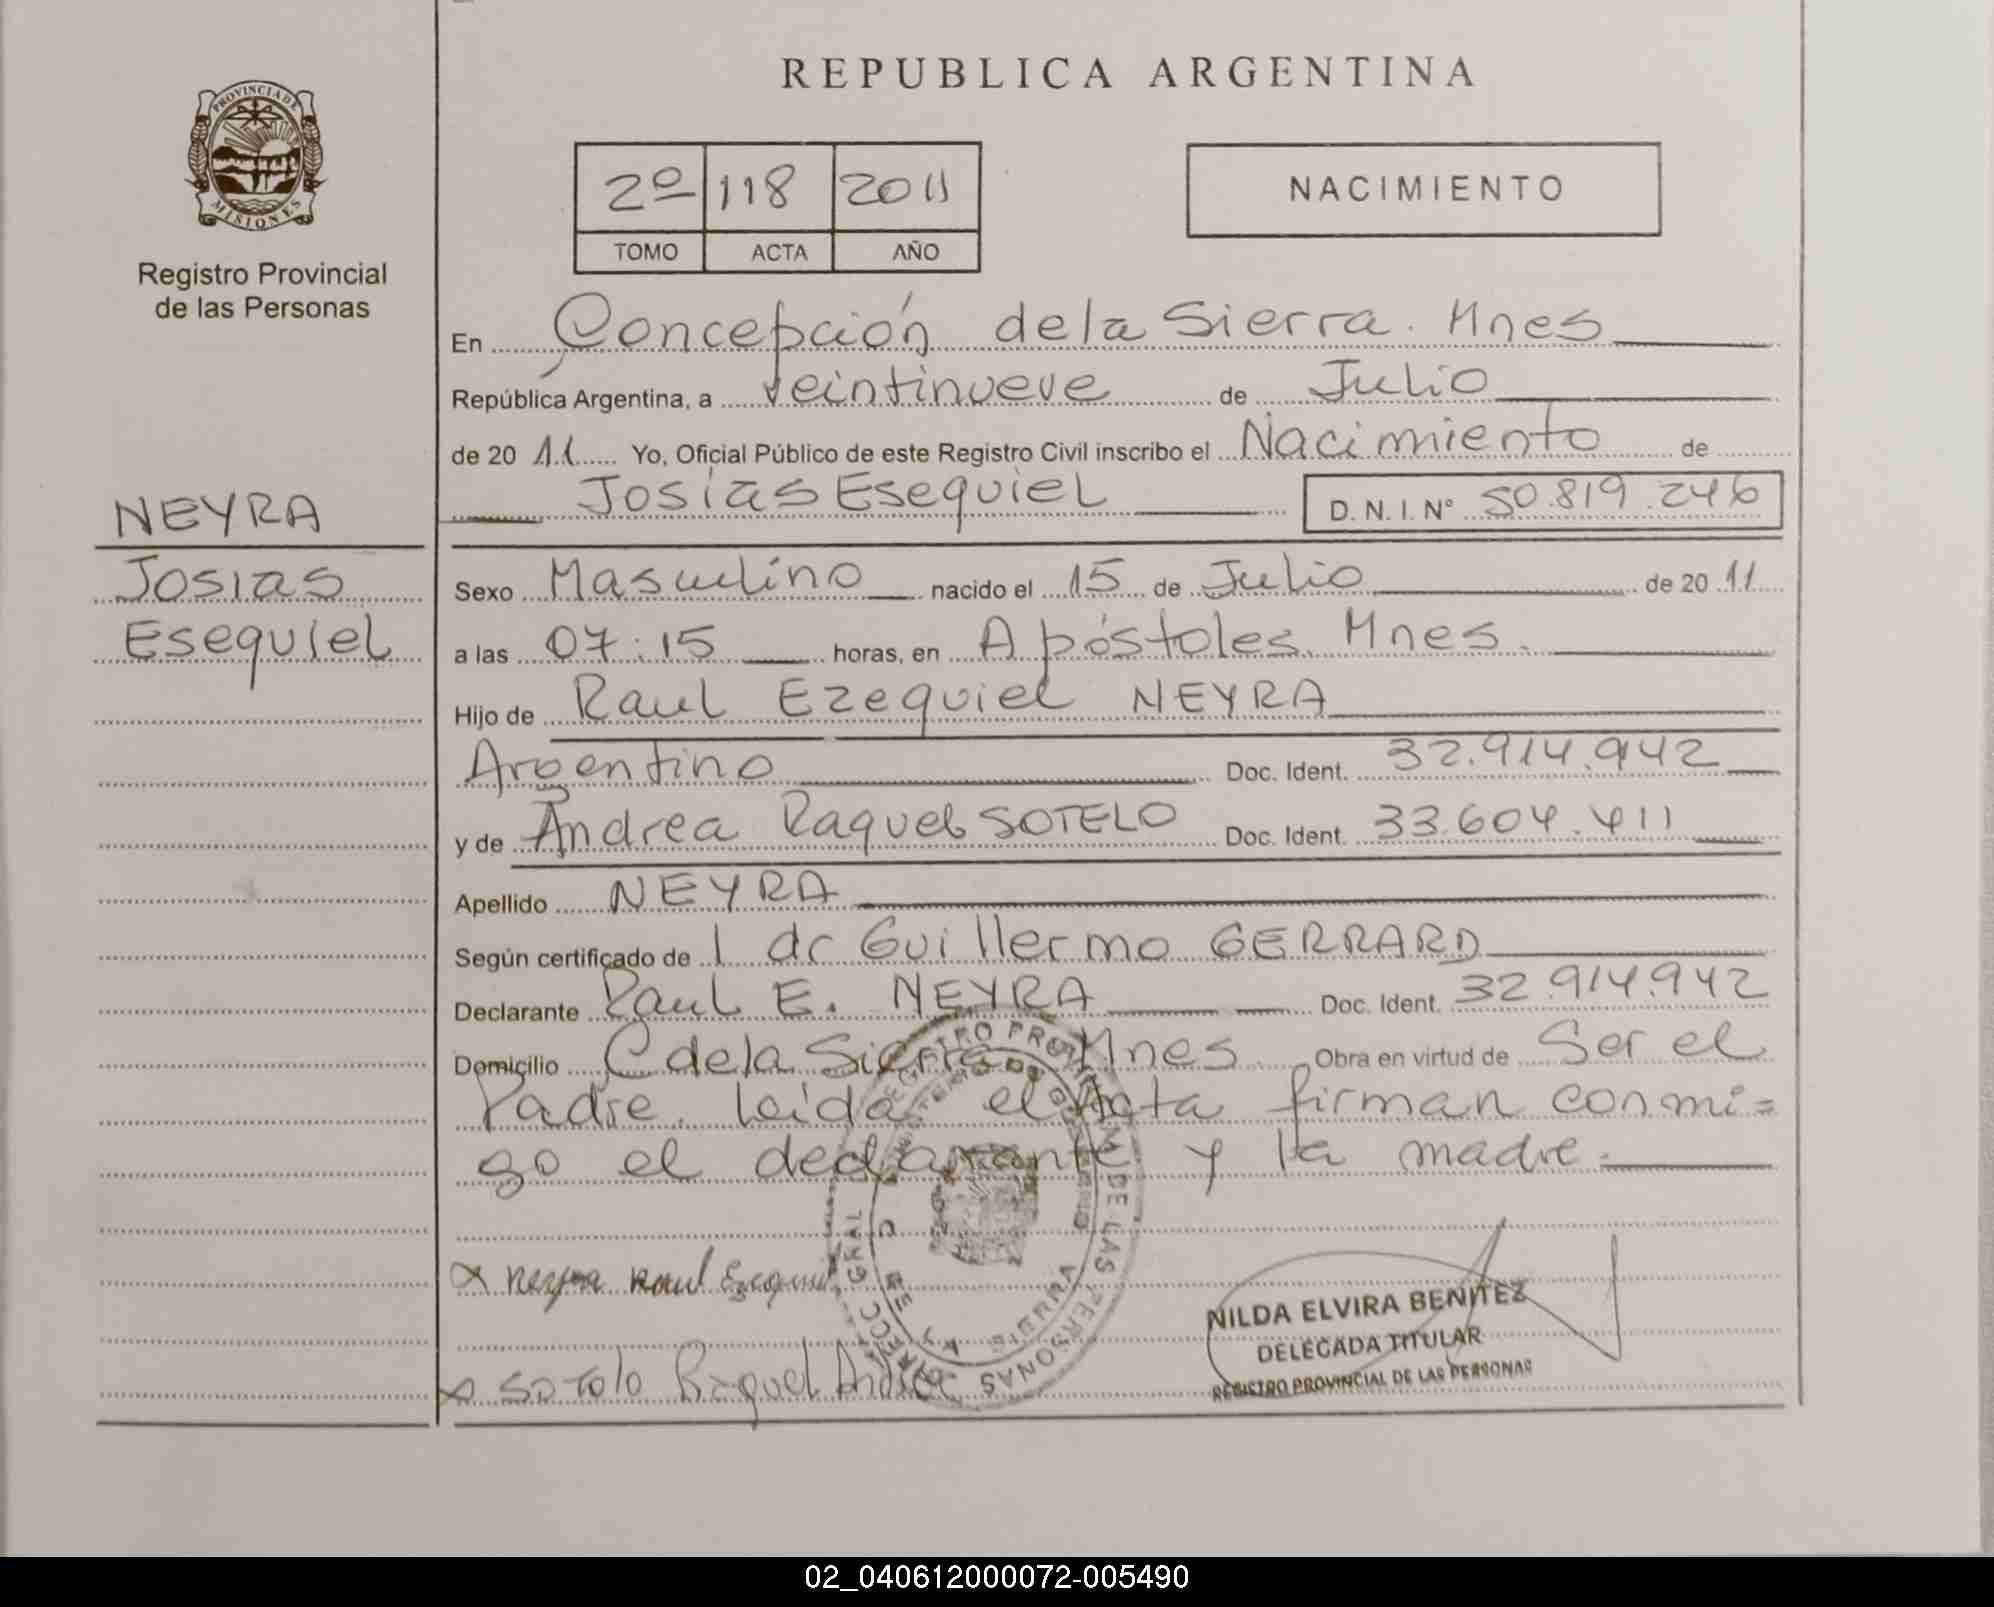 REPUBLICA ARGENTINA
PROVINCIA DE
MISIONES
Registro Provincial
de las Personas
2º 118 2011
TOMO ACTA AÑO
NACIMIENTO
En Concepción de la Sierra. Mnes
República Argentina, a veintinueve de Julio
de 20 11 Yo, Oficial Público de este Registro Civil inscribo el Nacimiento de
Josías Esequiel D. N. I. Nº 50.819.246
NEYRA
Josias
Esequiel
Sexo Masculino nacido el 15 de Julio de 20 11
a las 07:15 horas, en Apóstoles. Mnes.
Hijo de Raul Ezequiel NEYRA
Argentino Doc. Ident. 32.914.942
y de Andrea Raquel SOTELO Doc. Ident. 33.604.411
Apellido NEYRA
Según certificado de 1 dr Guillermo GERRARD
Declarante Raul E. NEYRA Doc. Ident. 32.914.942
Domicilio C de la Sierra Mnes Obra en virtud de Ser el
Padre. leida el Acta firman conmi=
go el declarante y la madre.
x neyra Raul Ezequiel
x Sotolo Raquel Andrea
REGISTRO PROVINCIAL DE LAS PERSONAS
SIERRA
NILDA ELVIRA BENITEZ
DELEGADA TITULAR
REGISTRO PROVINCIAL DE LAS PERSONAS
02_040612000072-005490